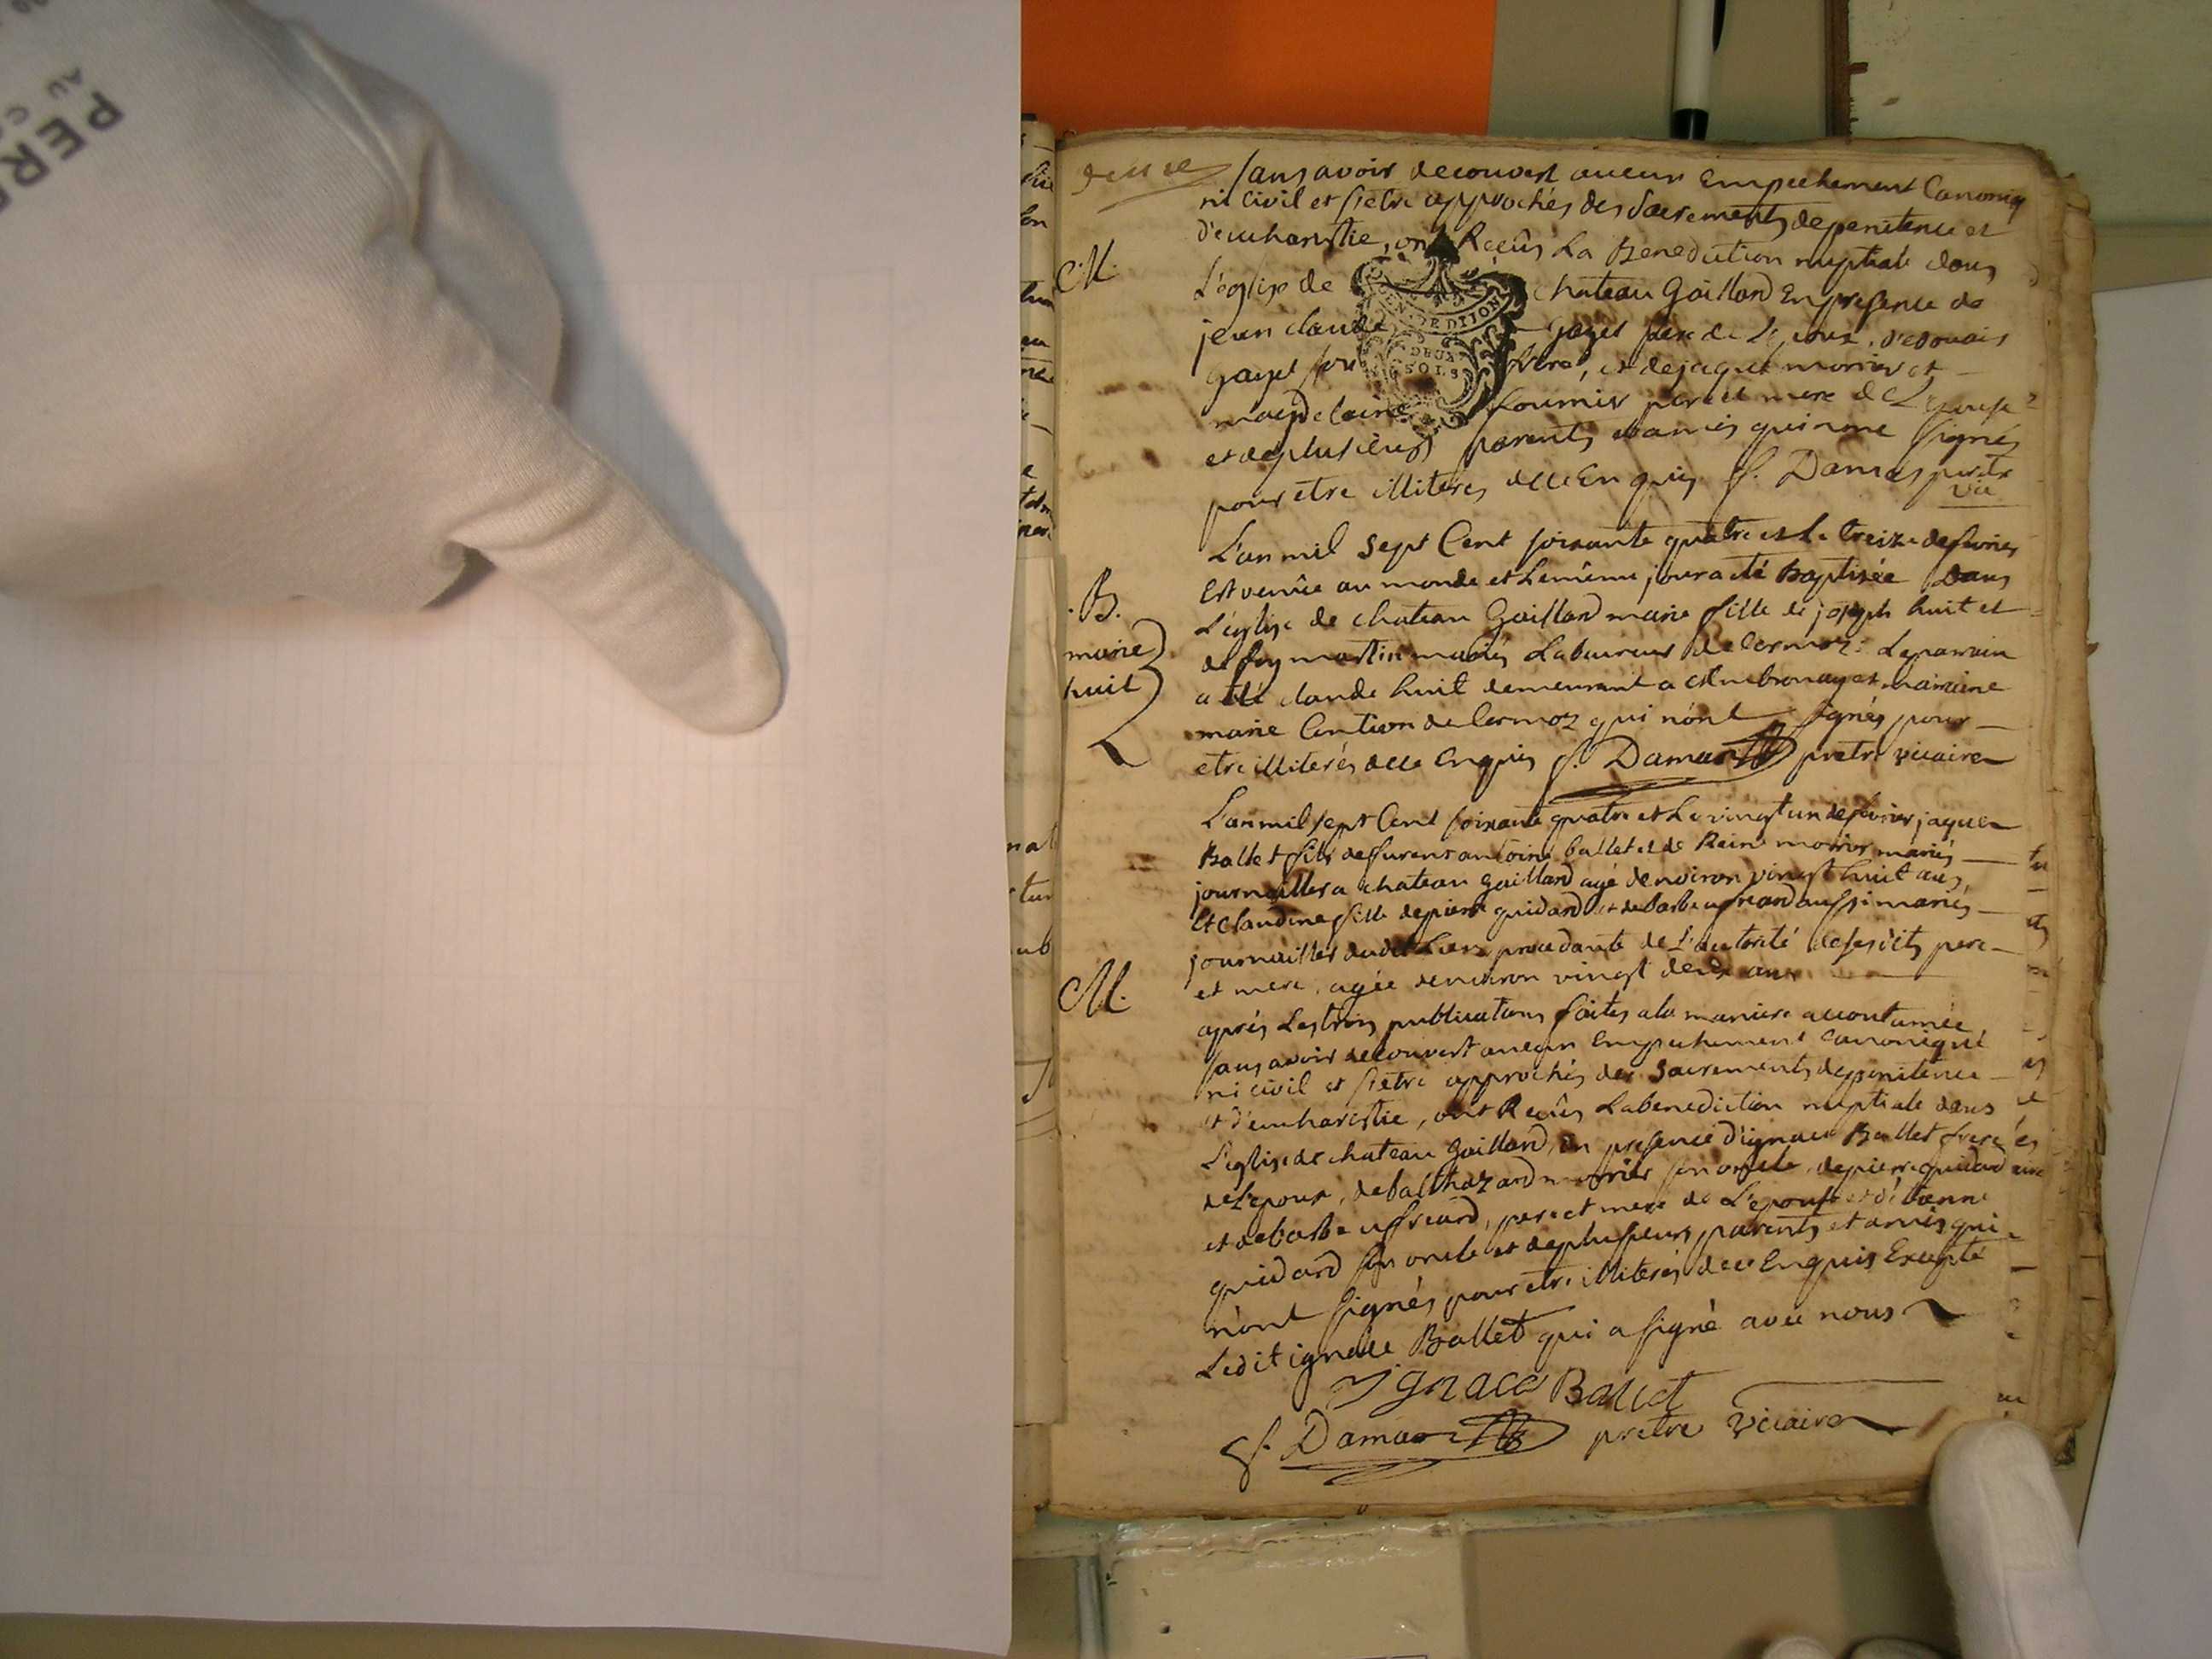 PERF
AU C
deuxe
sans avoir decouvert aucun Empechement Canoniq
ni civil et s'etre approchés des Sacrements de penitence et
d'eucharistie, ont Reçûs La Benediction nuptiale dans
C.M.
L'eglise de chateau Gaillard En presence de
GEN. DE DIJON
DEUX
SOLS
jean claude gayet pere de L'epoux,
gayet son frere, et de jaques morrier et
magdelaine fournier pere et mere de L'epouse
et de plusieurs parents et amis qui n'ont signés
pour etre illiterés de ce Enquis f. Damas pretre
vic
L'an mil Sept Cent soixante quatre et Le treize de fevrier
Est venûe au monde et Le même jour a été Baptisée Dans
.B.
marie
huit
L'eglise de chateau Gaillard marie fille de joseph huit et
de foy martin mariés Laboureurs de Cormoz. Le parrain
a été claude huit demeurant a et maraine
marie de Cormoz qui n'ont signés pour
etre illiterés de ce Enquis f. Damas pretre vicaire
L'an mil sept Cent soixante quatre et Le vingt un de fevrier jaques
Ballet fils de furent antoine ballet et de Reine morrier mariés
journalliers a chateau gaillard agé d'environ vingt huit ans,
Et claudine fille de pierre guidard et de barbe ufreard aussi mariés
journailliers dudit Lieu procedante de L'autorité de ses dits pere
M.
et mere, agée d'environ vingt deux ans
aprés Les trois publications faites a la maniere accoutumée,
sans avoir decouvert aucun Empechement canonique
ni civil et s'etre approchés des Sacrements de penitence
et d'eucharistie, ont Reçûs La benediction nuptiale dans
L'eglise de chateau Gaillard, En presence d'ignace Ballet frere
de L'epoux, de balthazard morrier son oncle, de pierre guidard
et de barbe ufreard, pere et mere de L'epouse et d'etienne
guidard son oncle et de plusieurs parents et amis qui
n'ont signés pour etre illiterés de ce Enquis Excepté
Ledit ignace Ballet qui a signé avec nous
Ignace Ballet
f. Damas pretre vicaire